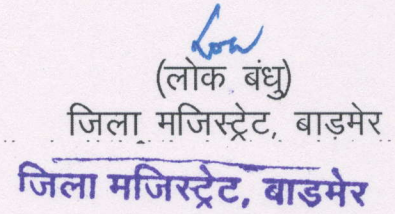 (लोक बंधु)
जिला मजिस्ट्रेट, बाड़मेर
जिला मजिस्ट्रेट, बाडमेर